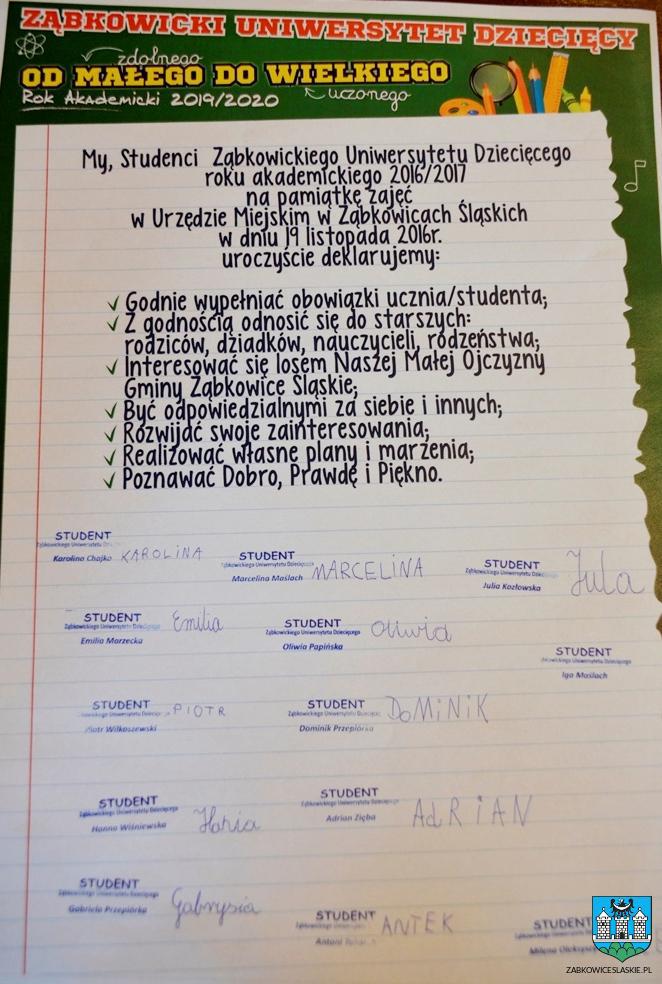 ZĄBKOWICKI UNIWERSYTET DZIECIĘCY
zdolnego
OD MAŁEGO DO WIELKIEGO
uczonego
Rok Akademicki 2019/2020
My, Studenci Ząbkowickiego Uniwersytetu Dziecięcego
roku akademickiego 2016/2017
na pamiątkę zajęć
w Urzędzie Miejskim w Ząbkowicach Śląskich
w dniu 19 listopada 2016r.
uroczyście deklarujemy:
✓ Godnie wypełniać obowiązki ucznia/studenta;
✓ Z godnością odnosić się do starszych:
rodziców, dziadków, nauczycieli, rodzeństwa;
✓ Interesować się losem Naszej Małej Ojczyzny
Gminy Ząbkowice Śląskie;
✓ Być odpowiedzialnymi za siebie i innych;
✓ Rozwijać swoje zainteresowania;
✓ Realizować własne plany i marzenia;
✓ Poznawać Dobro, Prawdę i Piękno.
STUDENT
Ząbkowickiego Uniwersytetu Dziecięcego
Karolina Chajko KAROLINA
STUDENT
Ząbkowickiego Uniwersytetu Dziecięcego
Marcelina Maślach MARCELINA
STUDENT
Ząbkowickiego Uniwersytetu Dziecięcego
Julia Kozłowska Jula
STUDENT
Ząbkowickiego Uniwersytetu Dziecięcego
Emilia Marzecka Emilia
STUDENT
Ząbkowickiego Uniwersytetu Dziecięcego
Oliwia Papińska Oliwia
STUDENT
Ząbkowickiego Uniwersytetu Dziecięcego
Iga Maślach
STUDENT
Ząbkowickiego Uniwersytetu Dziecięcego
Piotr Wilkoszewski PIOTR
STUDENT
Ząbkowickiego Uniwersytetu Dziecięcego
Dominik Przepiórka DOMINIK
STUDENT
Ząbkowickiego Uniwersytetu Dziecięcego
Hanna Wiśniewska Hania
STUDENT
Ząbkowickiego Uniwersytetu Dziecięcego
Adrian Zięba AdRiAN
STUDENT
Ząbkowickiego Uniwersytetu Dziecięcego
Gabriela Przepiórka Gabrysia
STUDENT
Ząbkowickiego Uniwersytetu Dziecięcego
Antoni ANTEK
STUDENT
Milena
ZABKOWICESLASKIE.PL